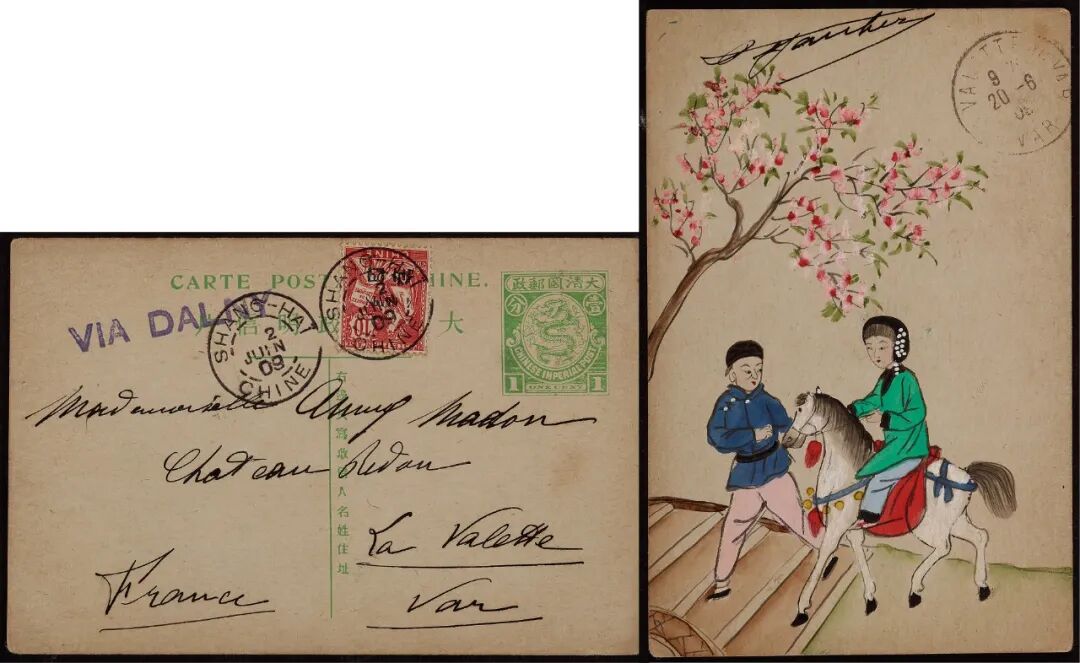 CARTE POST HINE.
大清國郵政
壹
分
CHINESE IMPERIAL POST
1 ONE CENT 1
VIA DALNY
SHANG-HAI
2
JUIN
09
CHINE
SHANG-HAI
2
JUIN
09
CHINE
大
明信
Mademoiselle Madon
Chateau Redon
La Valette
Var
France
寫收信人名姓住址
Gauthier
VALETTE
VAR
9
20 -6
VAR